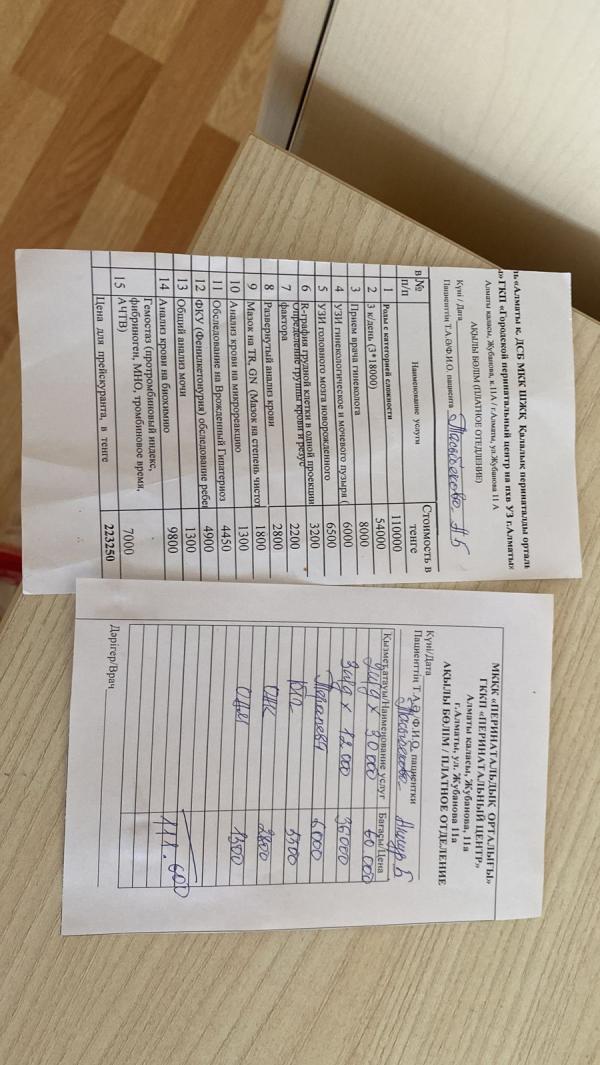 ь «Алматы қ. ДСБ МКК ШЖҚ Қалалық перинаталды орталы
» ГКП «Городской перинатальный центр на пхв УЗ г.Алматы»
Алматы қаласы, Жубанова, к.11А / г.Алматы, ул.Жубанова 11 А
АҚЫЛЫ БӨЛІМ (ПЛАТНОЕ ОТДЕЛЕНИЕ)
Күні / Дата
Пациентің Т.А.Ә/Ф.И.О. пациента Тасыбекова А Б
в № п/п Наименование услуги Стоимость в тенге
1 Роды с категорией сложности 110000
2 3 к/день (3*18000) 54000
3 Прием врача гинеколога 8000
4 УЗИ гинекологическое и мочевого пузыря ( 6000
5 УЗИ головного мозга новорожденного 6500
6 R-графия грудной клетки в одной проекции 3200
7 Определение группы крови и резус фактора 2200
8 Развернутый анализ крови 2800
9 Мазок на TR, GN (Мазок на степень чистот 1800
10 Анализ крови на микрореакцию 1300
11 Обследование на Врожденный Гипатериоз 4450
12 ФКУ (Фенилкетонурия) обследование ребе 4900
13 Общий анализ мочи 1300
14 Анализ крови на биохимию 9800
15 Гемостаз (протромбиновый индекс,
фибриноген, МНО, тромбиновое время,
АЧТВ) 7000
Цена для прейскуранта, в тенге 223250
МКҚК «ПЕРИНАТАЛЬДЫҚ ОРТАЛЫҒЫ»
ГККП «ПЕРИНАТАЛЬНЫЙ ЦЕНТР»
Алматы қаласы, Жубанова, 11а
г.Алматы, ул. Жубанова 11а
АҚЫЛЫ БӨЛІМ / ПЛАТНОЕ ОТДЕЛЕНИЕ
Күні/Дата
Пациенттің Т.А.Ә./Ф.И.О. пациентки Тасыбекова Б
Қызмет атауы/Наименование услуг Бағасы/Цена
х 30 000 60 000
х 12 000 36000
6000
5500
ОАК 2800
ОАМ 1300
111.600
Дәрігер/Врач